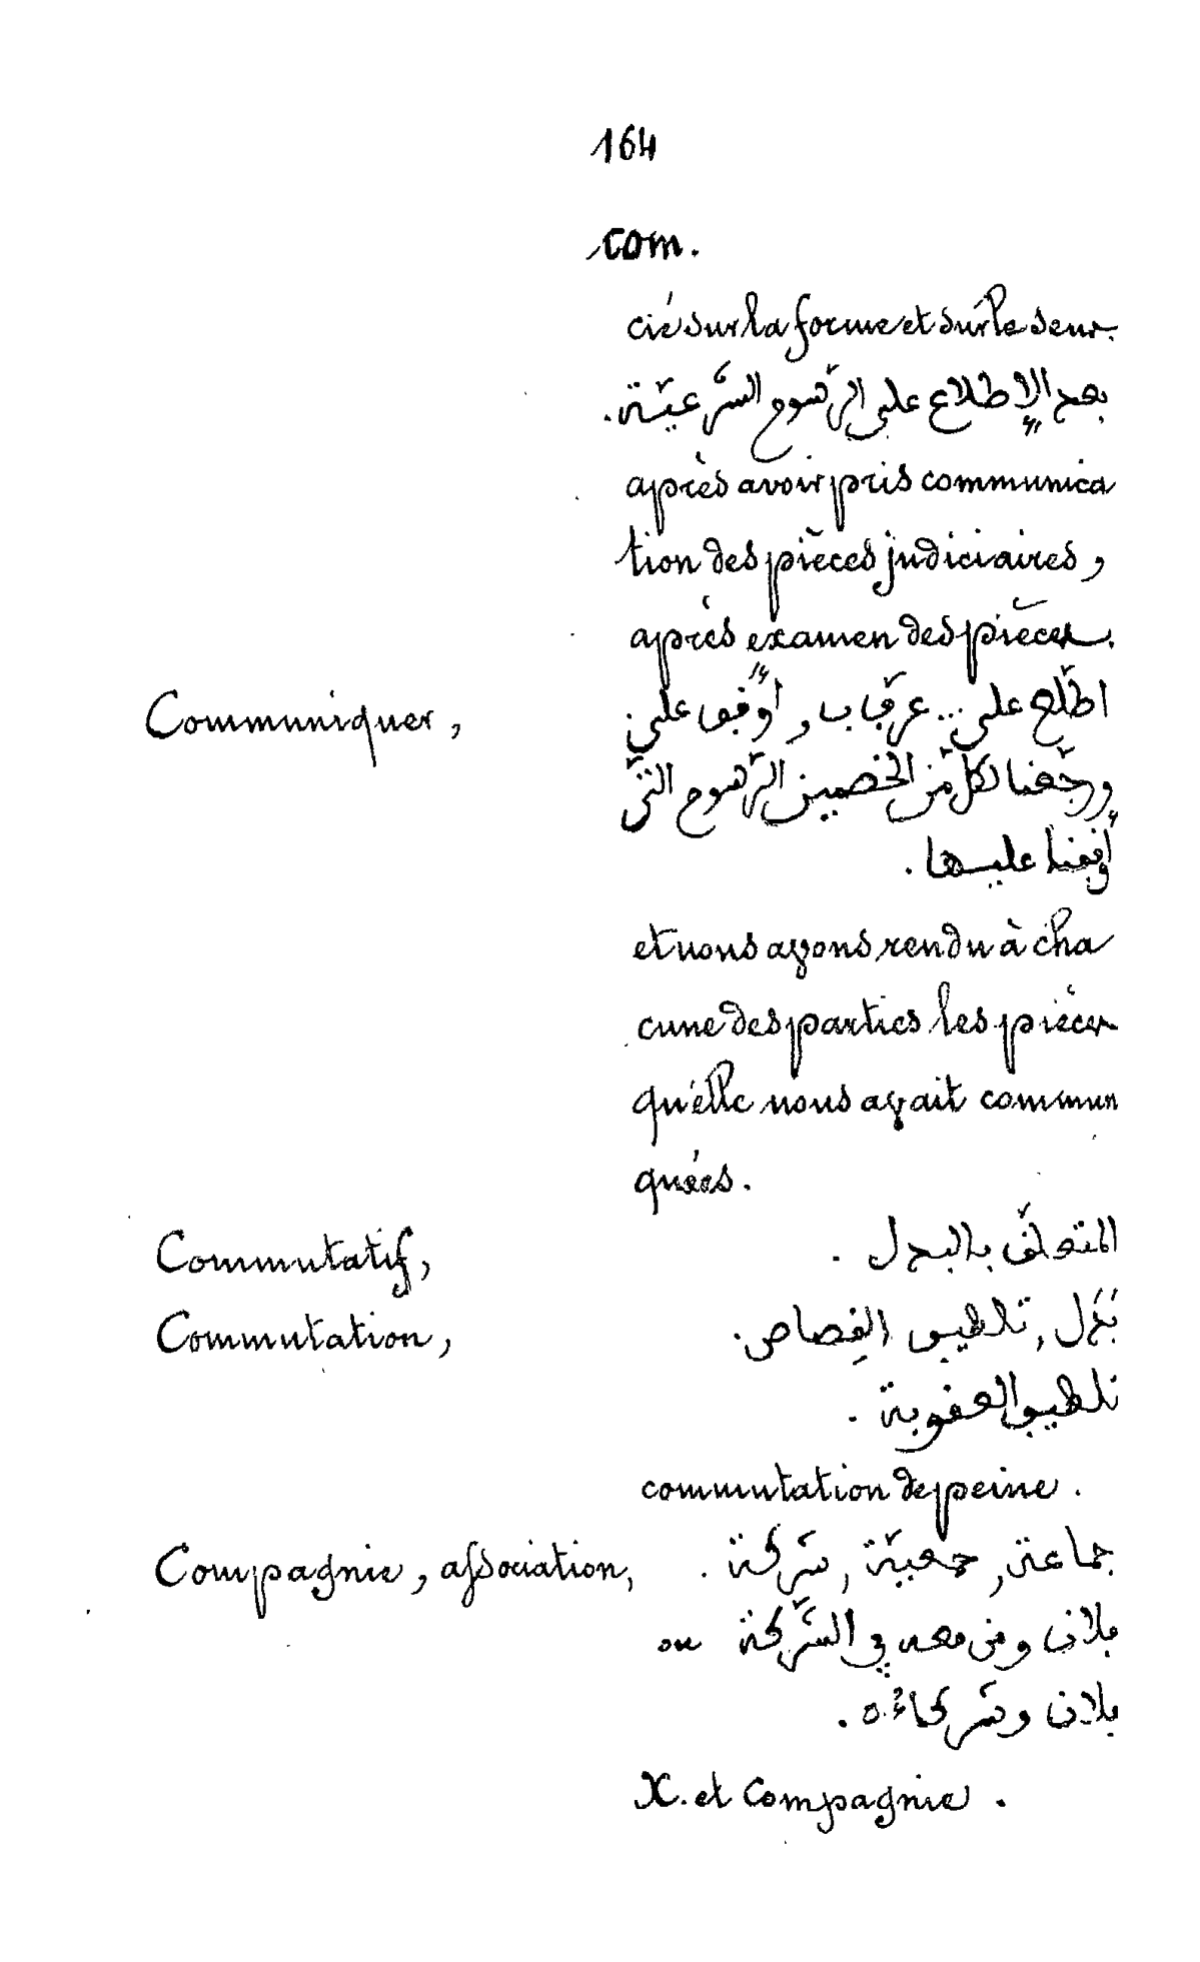 164
com.
cié sur la forme et sur le sens.
بعد الإطلاع على الرّسوم الشّرعيّة.
après avoir pris communica
tion des pièces judiciaires,
après examen des pièces.
Communiquer, اطّلع على... عرّف ب, أوقف على.
ورجّعنا لكلّ من الخصمين الرّسوم التي
أوقفنا عليها.
et nous avons rendu à cha
cune des parties les pièces
qu'elle nous avait commun
quées.
Commutatif, المتعلّق بالبدل.
Commutation, بَدَل, تلطيف القِصاص.
تلطيف العقوبة.
commutation de peine.
Compagnie, association, جماعة, جمعيّة, شركة.
فلان ومن معه في الشّركة ou
فلان وشركاؤه.
X. et Compagnie.